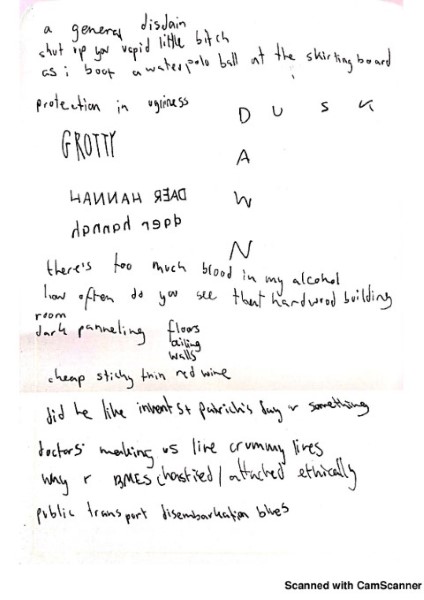 a general disdain
shut up you vapid little bitch
as i boot a waterpolo ball at the skirting board
protection in ugliness
DUSK
A
W
N
GROTTY
DAER HANNAH
daer hannah
there's too much blood in my alcohol
how often do you see that hardwood building
room
dark panneling floors
ceiling
walls
cheap sticky thin red wine
did he like invent St Patrick's day or something
doctors making us live crummy lives
why r BMES chastised / attacked ethically
public transport disembarkation blues
Scanned with CamScanner